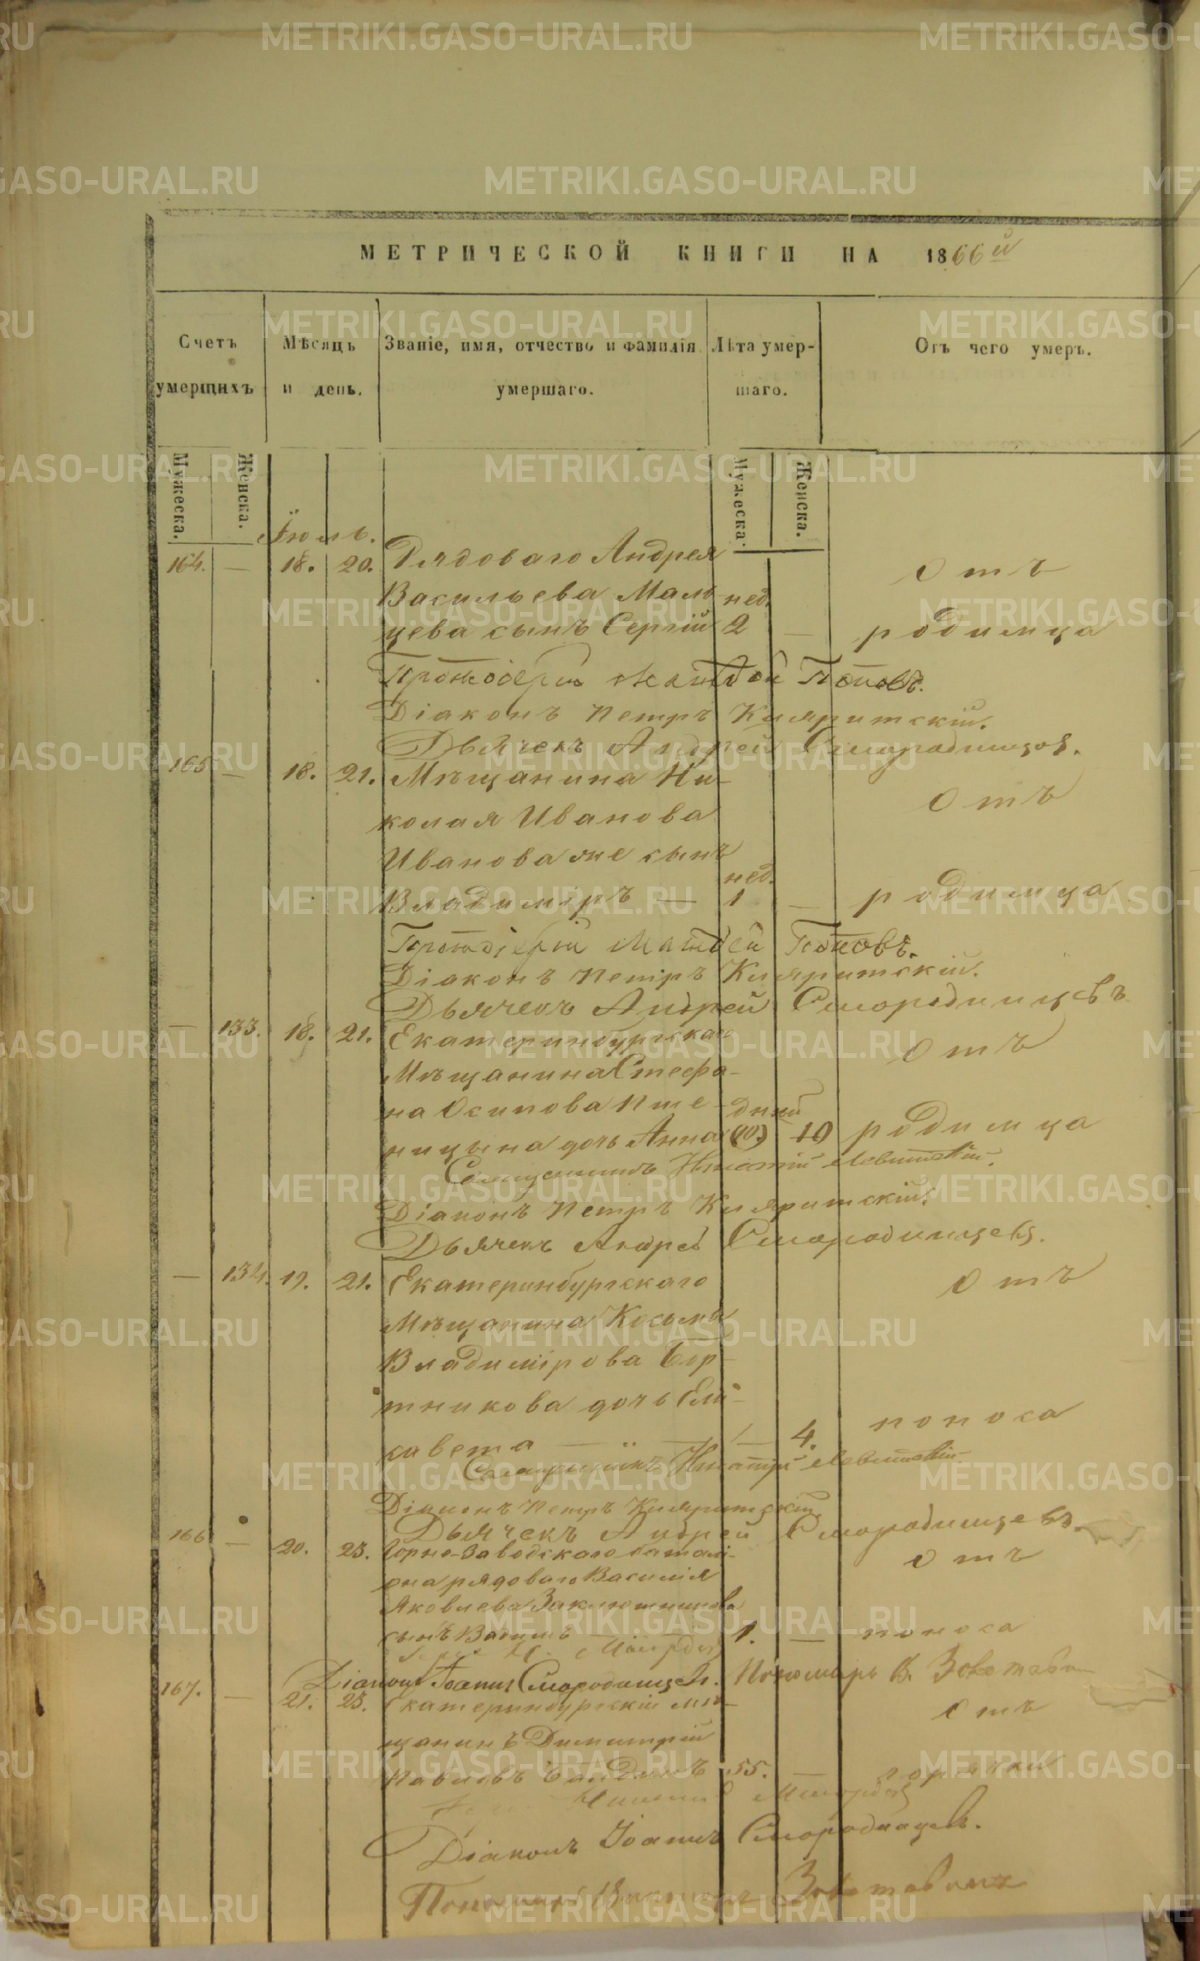 МЕТРИЧЕСКОЙ КНИГИ НА 1866й
Счетъ умершихъ
Мѣсяцъ и день.
Званіе, имя, отчество и фамилія умершаго.
Лѣта умершаго.
Отъ чего умеръ.
Мужеска. Женска. Мужеска. Женска.
Іюль.
164. — 18. 20. Рядоваго Андрея Отъ
Васильева Маль- нед.
цева сынъ Сергій 2 — родимца
Протоіерей Матѳей Поповъ.
Діаконъ Петръ
Дьячекъ Андрей Смородинцовъ.
165 — 18. 21. Мѣщанина Ни- Отъ
колая Иванова
Иванова же сынъ нед.
Владиміръ — 1 — родимца
Протоіерей Матѳей Поповъ.
Діаконъ Петръ
Дьячекъ Андрей Смородинцевъ
— 133. 18. 21. Екатеринбургскаго Отъ
Мѣщанина Стефа-
на Осипова Пше- дней
ницына дочь Анна (10.) 10 родимца
Священникъ Игнатій Левитскій.
Діаконъ Петръ
Дьячекъ Андрей Смородинцевъ.
— 134. 19. 21. Екатеринбургскаго Отъ
Мѣщанина Косьмы
Владимірова Бор-
тникова дочь Ели-
савета — — 4. поноса
Священникъ Игнатій Левитскій
Діаконъ Петръ
Дьячекъ Андрей Смородинцевъ.
166 — 20. 23. Горно-Заводскаго батал- Отъ
іона рядоваго Василія
Яковлева
сынъ 1. — поноса
Діаконъ Іоаннъ Смородинцевъ. Пономарь В.
167. — 21. 23. Екатеринбургскій мѣ- Отъ
щанинъ Димитрій
Павловъ 55. — горячки
Діаконъ Іоаннъ Смородинцевъ.
Пономарь
METRIKI.GASO-URAL.RU